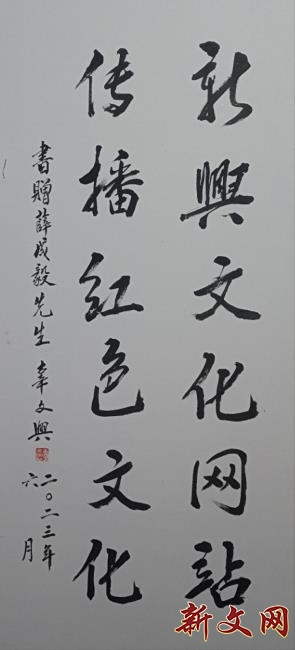 新興文化网站
传播红色文化
書贈薛成毅先生 文興
二〇二三年
六月
新文网